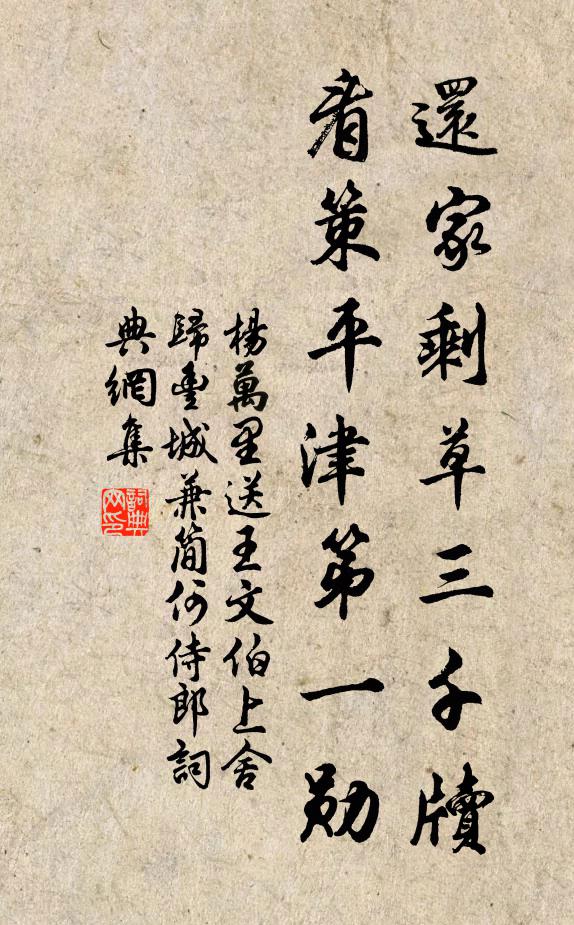 還家剩草三千牘
看策平津第一勛
楊萬里送王文伯上舍
歸豐城兼簡何侍郎詞
典網集
詞典
网印